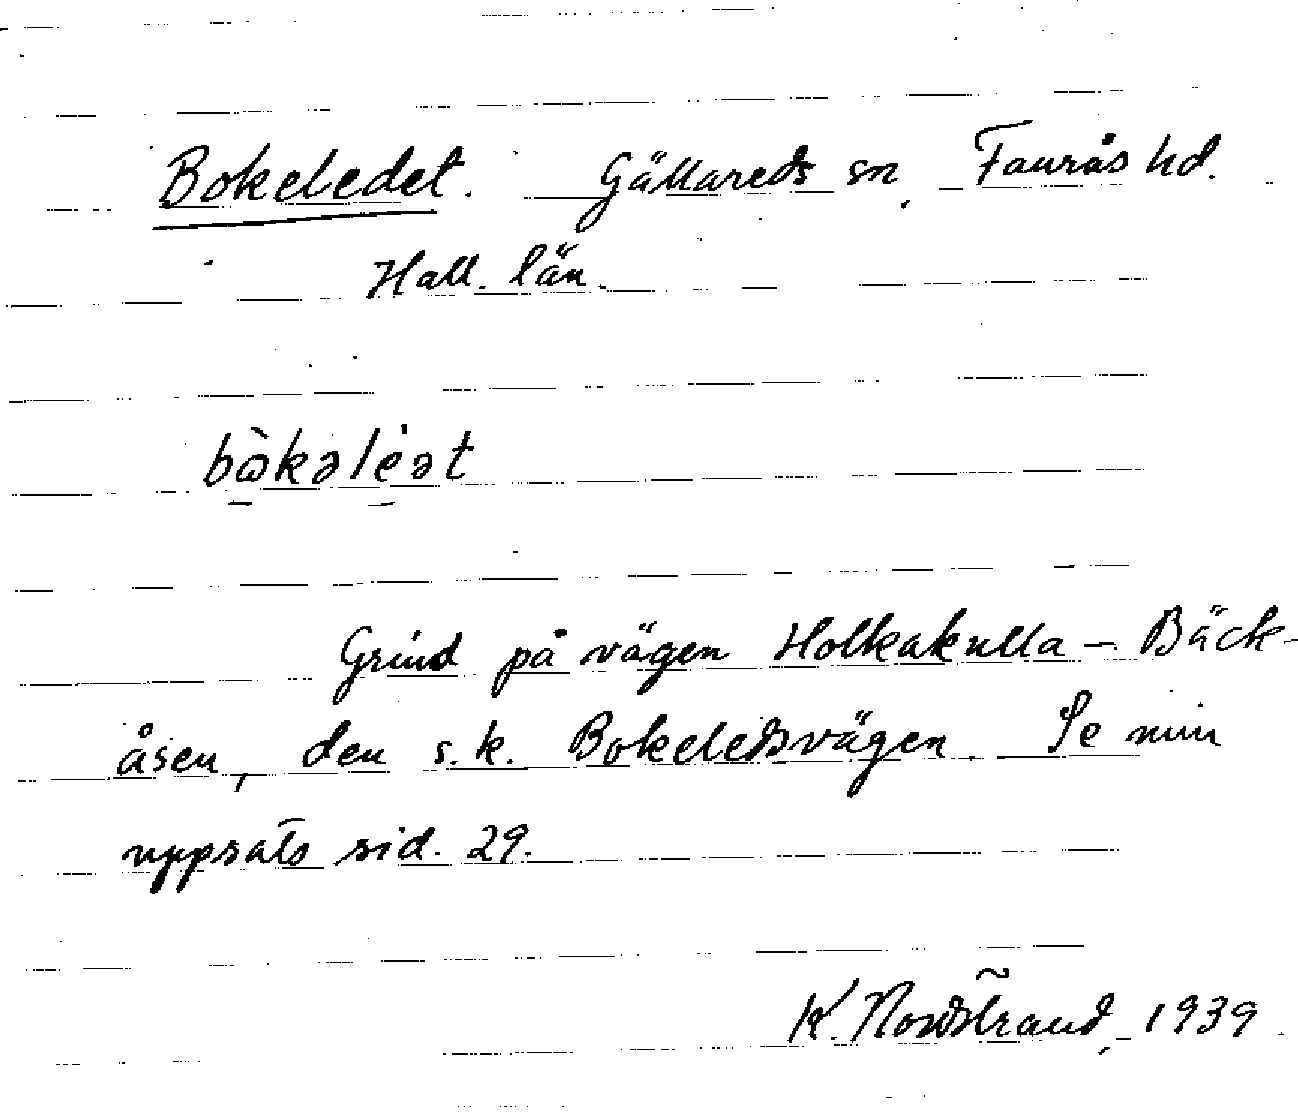 Bokeledet. Gällareds sn, Faurås hd.
Hall. län.
bὼ̠kəle̠̍ət
Grind på vägen Holkakulla - Bäck-
åsen, den s.k. Bokeledsvägen. Se min
uppsats sid. 29.
K. Nordstrand, 1939